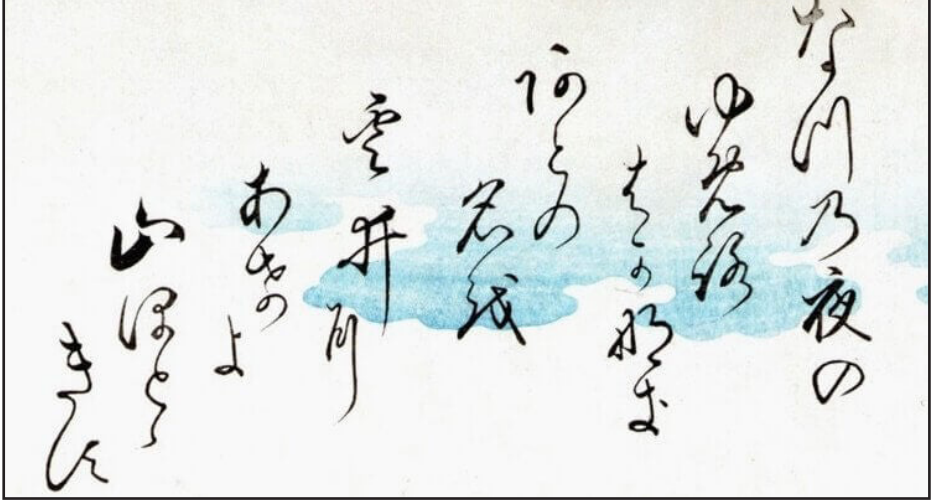 な川乃夜の
ゆめ路
はか那き
阿との
名越
雲井に
あけよ
山ほとゝ
きす